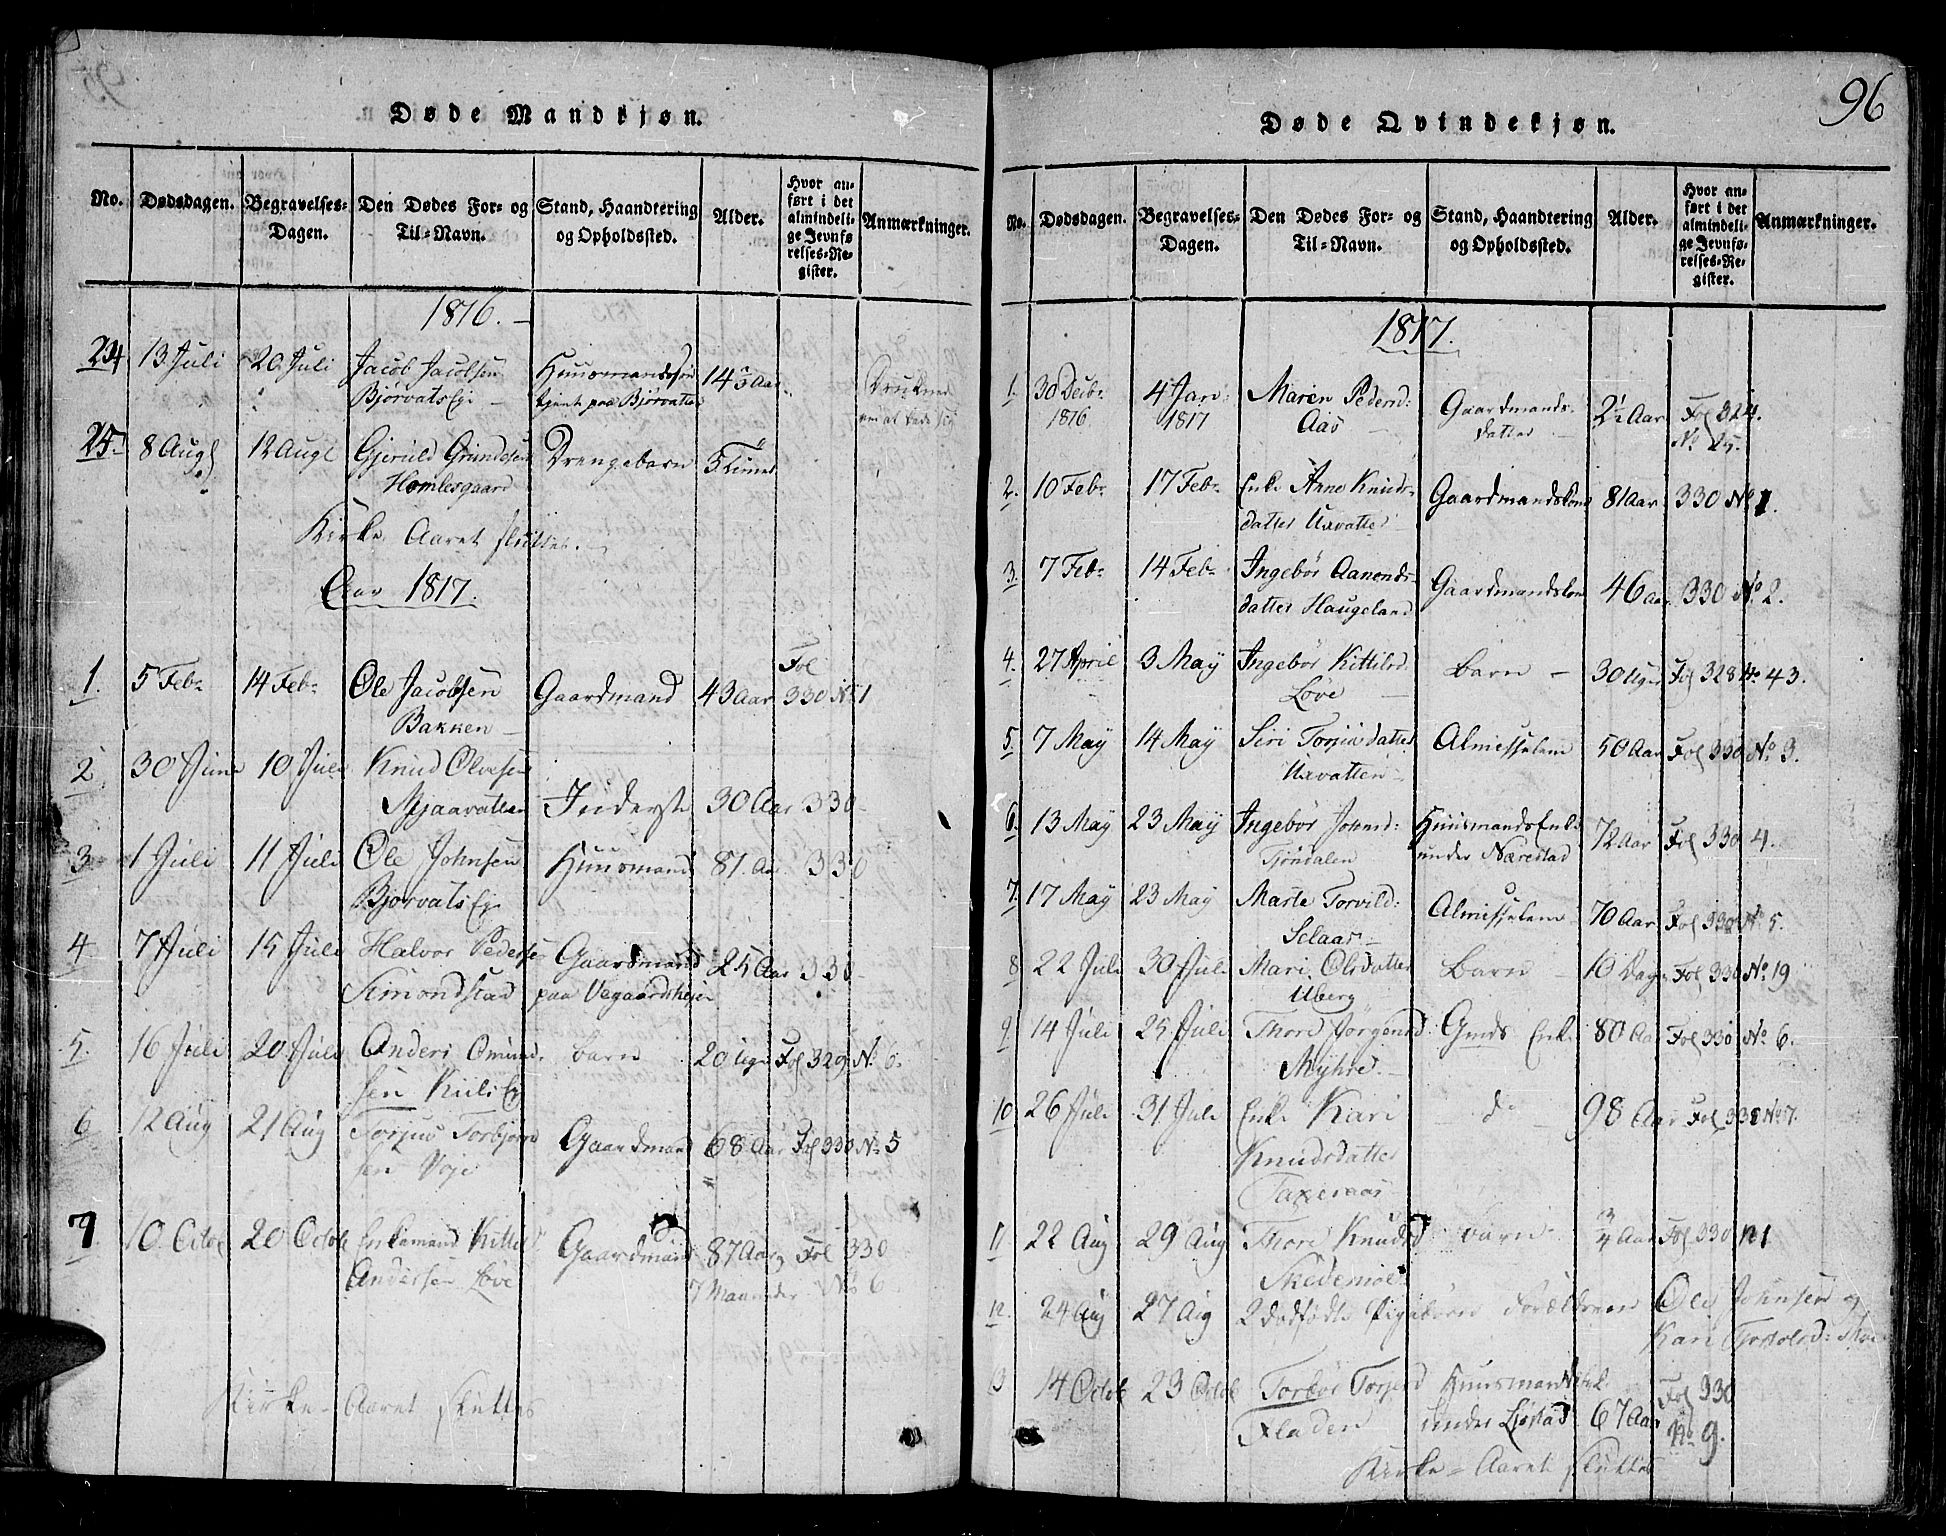 96
Døde Mandkjøn.
No. Dødsdagen. Begravelses-Dagen. Den Dødes For- og Til-Navn. Stand, Haandtering og Opholdssted. Alder. Hvor anført i det almindelige Jevnførelses-Register. Anmærkninger.
1816.
24 13 Juli 20 Juli Jacob Jacobsen Huusmandssøn 14 Aar
Bjørvats Eje tjent paa Bjørvatten
25 8 Aug 12 Augl Gjeruld Gundesen Drengebarn 5 Timer
Homlesgaard
Kirke Aaret sluttes.
Aar 1817.
1. 5 Febr 14 Febr Ole Jacobsen Gaardmand 43 Aar Fol 330 No 1
Bakken
2 30 Juni 10 Juli Knud Olvesen
Mjaavatten Inderst 30 Aar 330
3 1 Juli 11 Juli Ole Johnsen Huusmand 81 Aar 330
Bjorvats Ej
4 7 Juli 15 Juli Halvor Pedersen Gaardmand 25 Aar 330
Simonstad paa Vegaardsheien
5. 16 Juli 20 Juli Anders Omund- barn 20 Uger Fol 329 No 6.
sen Kiils Ej
6 12 Aug 21 Aug Torjus Torbjørn Gaardmand 68 Aar Fol 330 No 5
sen Voje
7 10 Octob 20 Octob Enkemand Kittild Gaardmand 87 Aar og Fol 330
Andersen Løve 7 Maaneder No 6
Kirke-Aaret Sluttes
Døde Qvindekjøn.
No. Dødsdagen. Begravelses-Dagen. Den Dødes For- og Til-Navn. Stand, Haandtering og Opholdssted. Alder. Hvor anført i det almindelige Jevnførelses-Register. Anmærkninger.
1817.
1. 30 Decbr 4 Jan Maren Pedersd: Gaardmands- 2½ Aar Fol 324.
1816 1817 Aas datter No 25.
2. 10 Febr 17 Febr Enke Anne Knuds- Gaardmandskone 81 Aar 330 No 1.
datter Uxvatten
3. 7 Febr 14 Febr Ingebør Aanonds- Gaardmandskone 46 Aar 330 No 2.
datter Haugeland
4. 27 April 3 May Ingebør Kittilsd Barn 30 Uger Fol 328 No 43.
Løve
5. 7 May 14 May Siri Torjusdatter Almisselem 50 Aar Fol 330 No 3.
Uxvatten
6. 13 May 23 May Ingebør Johnsd: Huusmands Enke 72 Aar Fol 330 4.
Tjøndalen under Nærestad
7. 17 May 23 May Marte Torvild: Almisselem 70 Aar Fol 330 No 5.
Selaas
8 22 Juli 30 Juli Mari Olsdatter Barn 10 Dage Fol 330 No 19
Uberg
9. 14 Juli 25 Juli Thore Jørgensd Gmds Enke 80 Aar Fol 330 No 6.
Myhre
10 26 Juli 31 Juli Enke Kari do 98 Aar Fol 330 No 7.
Knudsdatter
Taxeraas
11 22 Aug 29 Aug Thore Knudsd barn ¾ Aar Fol 330 n 1
Skedemoe
12. 24 Aug 27 Aug 2 dødfødte Pigebørn Forældrene Ole Johnsen og
Kari
13 14 Octob 23 Octob Torbør Torjersd Huusmands Enke
Fladen under Ljøstad 67 Aar Fol 330
No 9.
Kirke-Aaret Sluttes